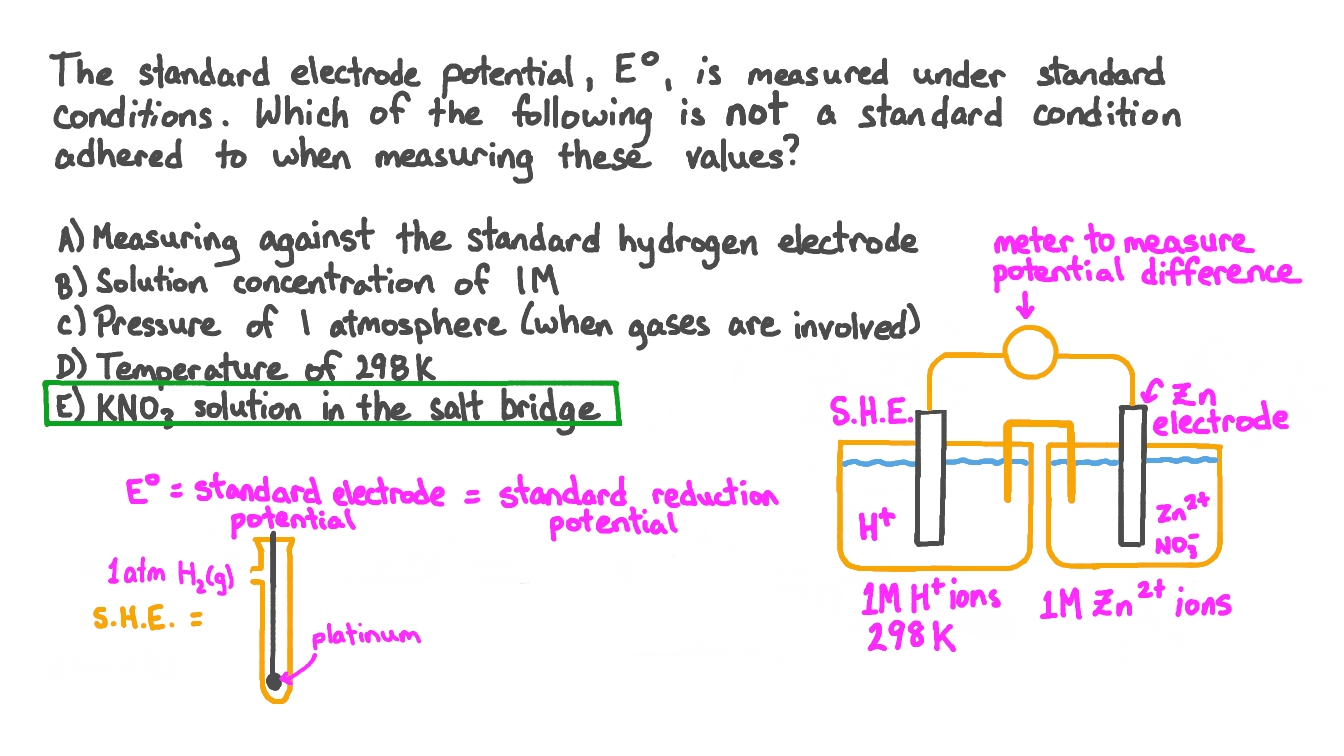 The standard electrode potential, E°, is measured under standard
conditions. Which of the following is not a standard condition
adhered to when measuring these values?
A) Measuring against the standard hydrogen electrode
B) Solution concentration of 1M
C) Pressure of 1 atmosphere (when gases are involved)
D) Temperature of 298K
E) KNO₃ solution in the salt bridge
meter to measure
potential difference
S.H.E.
Zn
electrode
H⁺
Zn²⁺
NO₃⁻
1M H⁺ ions
298K
1M Zn²⁺ ions
E° = standard electrode = standard reduction
potential potential
1atm H₂(g)
S.H.E. =
platinum